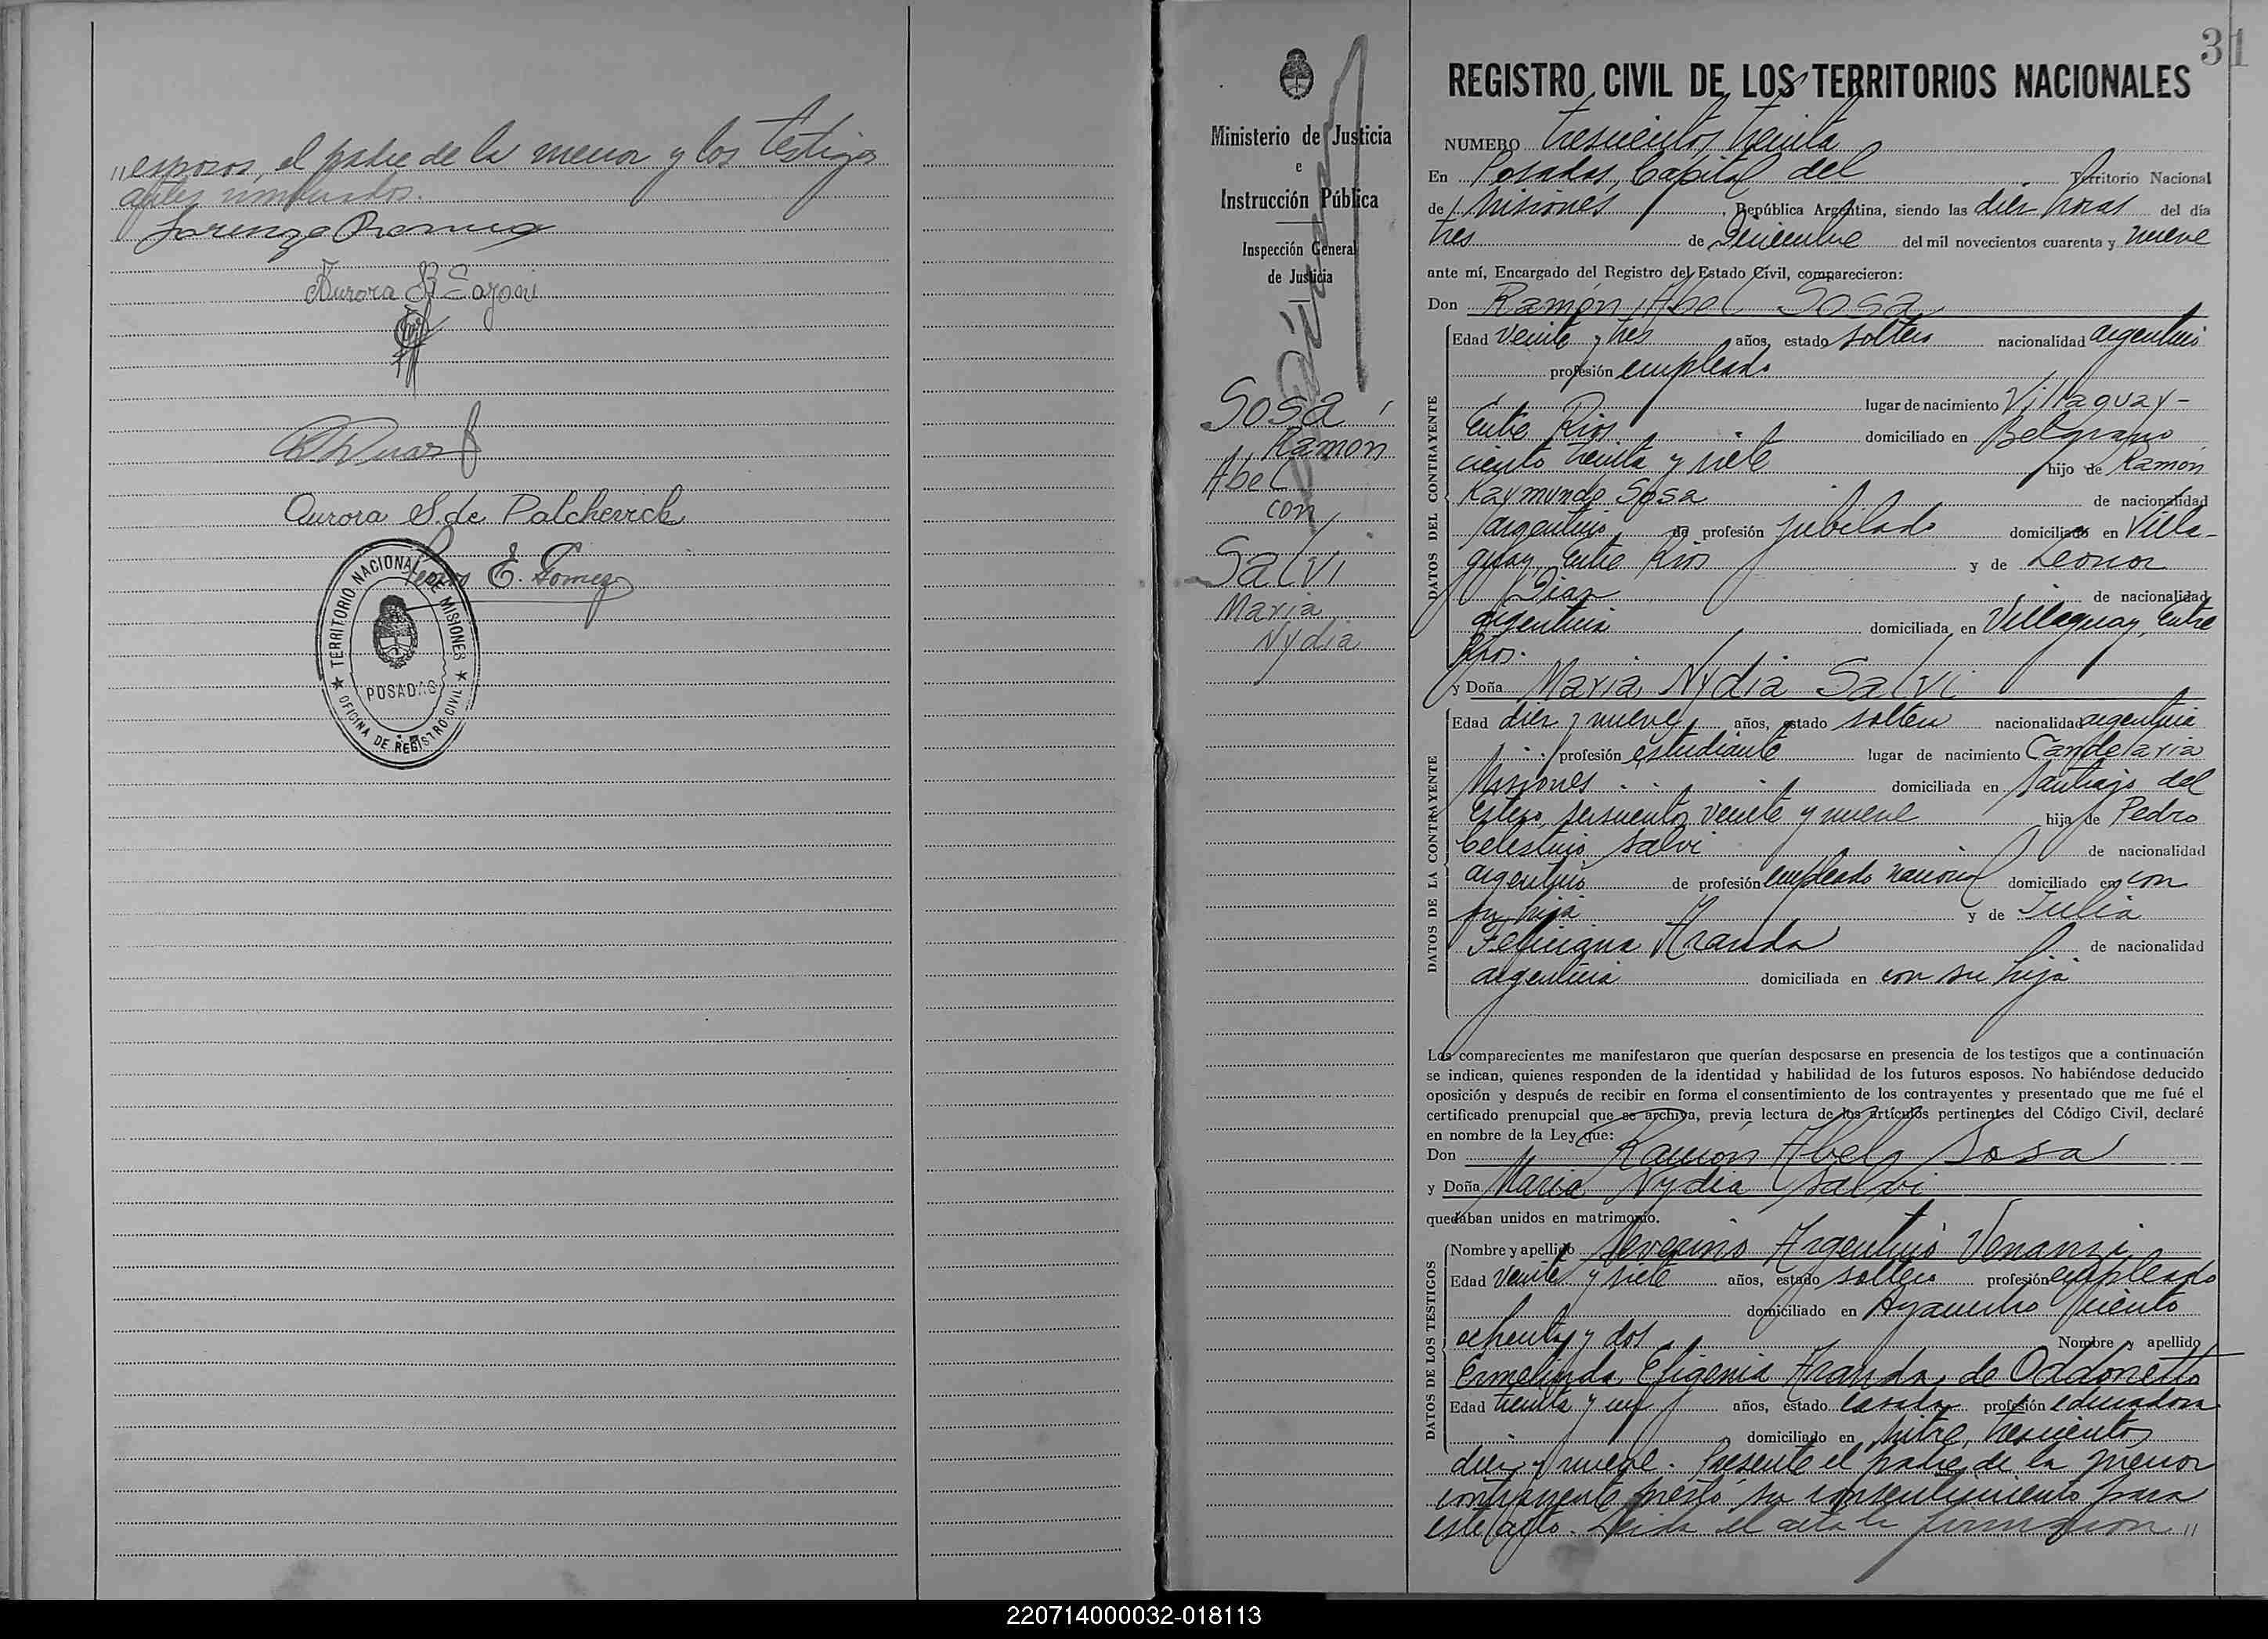 "esposos, el padre de la menor y los testigos
antes nombrados.
Lorenzo
Aurora
Aurora S. de Palchevich
E. Gomez
TERRITORIO NACIONAL DE MISIONES
POSADAS
★ OFICINA DE REGISTRO CIVIL ★
Ministerio de Justicia
e
Instrucción Pública
Inspección General
de Justicia
Sosa
Ramón
Abel
con
Salvi
Maria
Nydia
31
REGISTRO CIVIL DE LOS TERRITORIOS NACIONALES
NUMERO trescientos treinta
En Posadas, Capital del Territorio Nacional
de Misiones, República Argentina, siendo las diez horas del día
tres de Diciembre del mil novecientos cuarenta y nueve
ante mí, Encargado del Registro del Estado Civil, comparecieron:
Don Ramón Abel Sosa
DATOS DEL CONTRAYENTE
Edad veinte y tres años, estado soltero nacionalidad argentino
profesión empleado
lugar de nacimiento Villaguay-
Entre Rios domiciliado en Belgrano
ciento treinta y siete hijo de Ramón
Raymundo Sosa de nacionalidad
argentino de profesión jubilado domiciliado en Villa-
guay, Entre Rios y de Leonor
Diaz de nacionalidad
argentina domiciliada en Villaguay, Entre
Rios.
y Doña Maria Nydia Salvi
DATOS DE LA CONTRAYENTE
Edad diez y nueve años, estado soltera nacionalidad argentina
profesión estudiante lugar de nacimiento Candelaria
Misiones domiciliada en Santiago del
Estero, seiscientos veinte y nueve hija de Pedro
Celestino Salvi de nacionalidad
argentino de profesión empleado nacional domiciliado en con
su hija y de Julia
Feliciana Aranda de nacionalidad
argentina domiciliada en con su hija
Los comparecientes me manifestaron que querían desposarse en presencia de los testigos que a continuación
se indican, quienes responden de la identidad y habilidad de los futuros esposos. No habiéndose deducido
oposición y después de recibir en forma el consentimiento de los contrayentes y presentado que me fué el
certificado prenupcial que se archiva, previa lectura de los artículos pertinentes del Código Civil, declaré
en nombre de la Ley que:
Don Ramón Abel Sosa
y Doña Maria Nydia Salvi
quedaban unidos en matrimonio.
DATOS DE LOS TESTIGOS
Nombre y apellido Severino Argentino Venanzi
Edad veinte y siete años, estado soltero profesión empleado
domiciliado en Ayacucho ciento
ochenta y dos Nombre y apellido
Ermelinda Efigenia Aranda de Oddonetto
Edad treinta y un años, estado casada profesión educadora
domiciliado en Mitre, trescientos
diez y nueve. Presente el padre de la menor
contrayente prestó su consentimiento para
este acto. Leida el acta la firmaron "
220714000032-018113